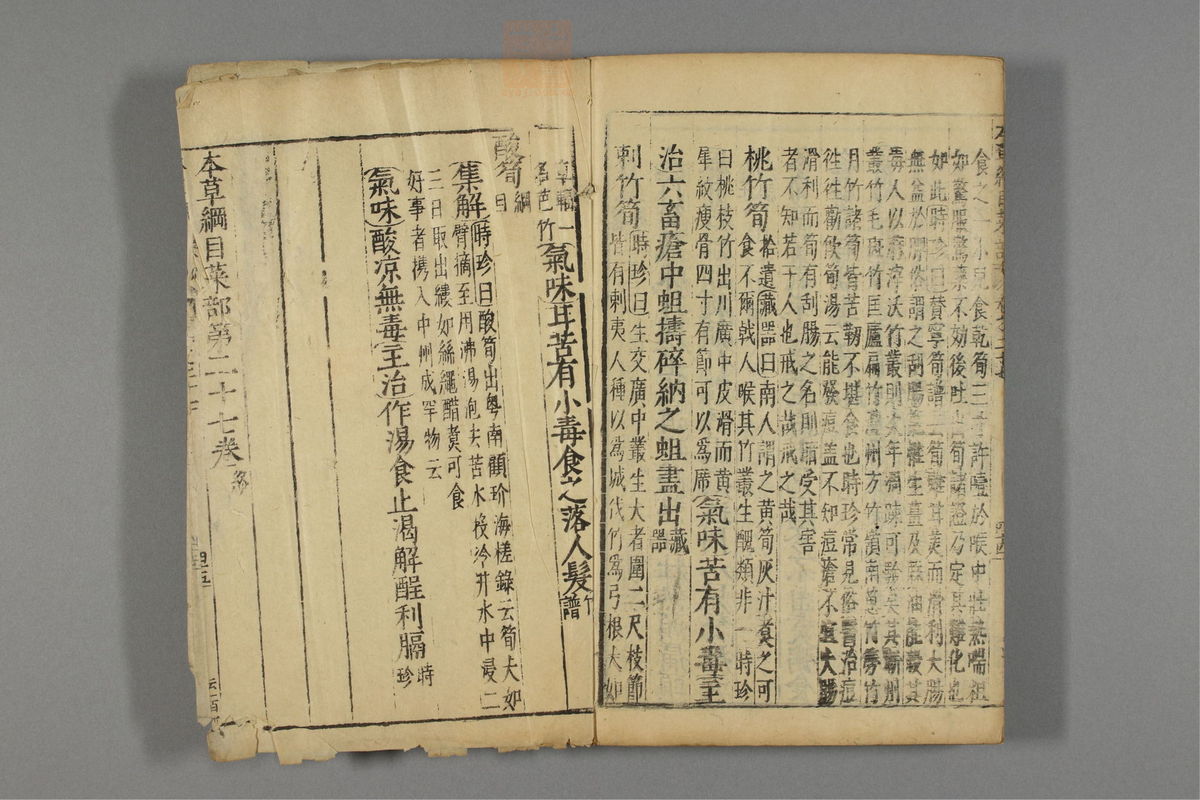 食之一小兒食乾筍三寸許噎於喉中壯熱喘粗
如驚服驚藥不効後吐出筍諸證乃定其難化也
如此時珍曰贊寧筍譜云筍雖甘美而滑利大腸
無益於肺俗謂之刮腸箆惟生薑及麻油能殺其
毒人以麻滓沃竹叢則次年凋疎可驗矣其蘄州
叢竹毛斑竹匡廬扁竹澧州方竹嶺南竹竹
月竹諸筍皆苦韌不堪食也時珍常見俗醫治痘
徃徃勸飲筍湯云能發痘蓋不知痘瘡不宜大腸
滑利而筍有刮腸之名則暗受其害
者不知若干人也戒之哉戒之哉
桃竹筍拾遺藏器曰南人謂之黃筍灰汁煑之可
食不爾戟人喉其竹叢生醜類非一時珍
曰桃枝竹出川廣中皮滑而黃
犀紋瘦骨四寸有節可以爲席氣味苦有小毒主
治六畜瘡中蛆擣碎納之蛆盡出藏器
刺竹筍時珍曰生交廣中叢生大者圍二尺枝節
皆有刺夷人種以爲城伐竹爲弓根大如
車輻一
名笆竹氣味甘苦有小毒食之落人髮竹譜
酸筍綱目
集解時珍曰酸筍出粵南顧玠海槎錄云筍大如
臂摘至用沸湯泡去苦水投冷井水中浸二
三日取出縷如絲繩醋煑可食
好事者携入中州成罕物云
氣味酸凉無毒主治作湯食止渴解酲利膈時珍
本草綱目菜部第二十七卷終